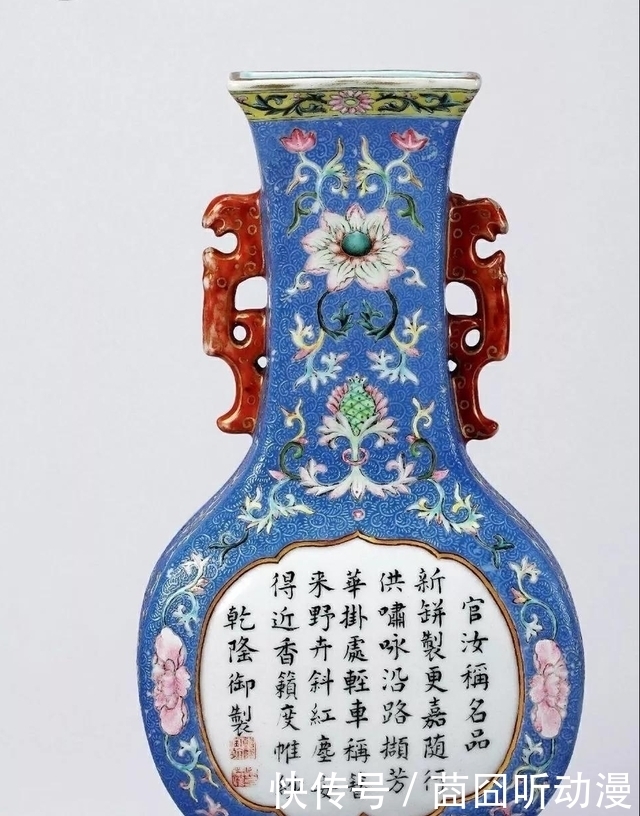 官汝稱名品
新缾製更嘉隨行
供嘯咏沿路擷芳
華掛處輕車稱簪
来野卉斜紅塵
得近香籟度帷
乾隆御製
快传号／茴囧听动漫